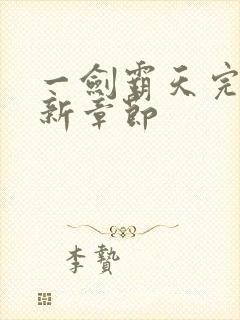 一劍霸天完
新章節
李贄